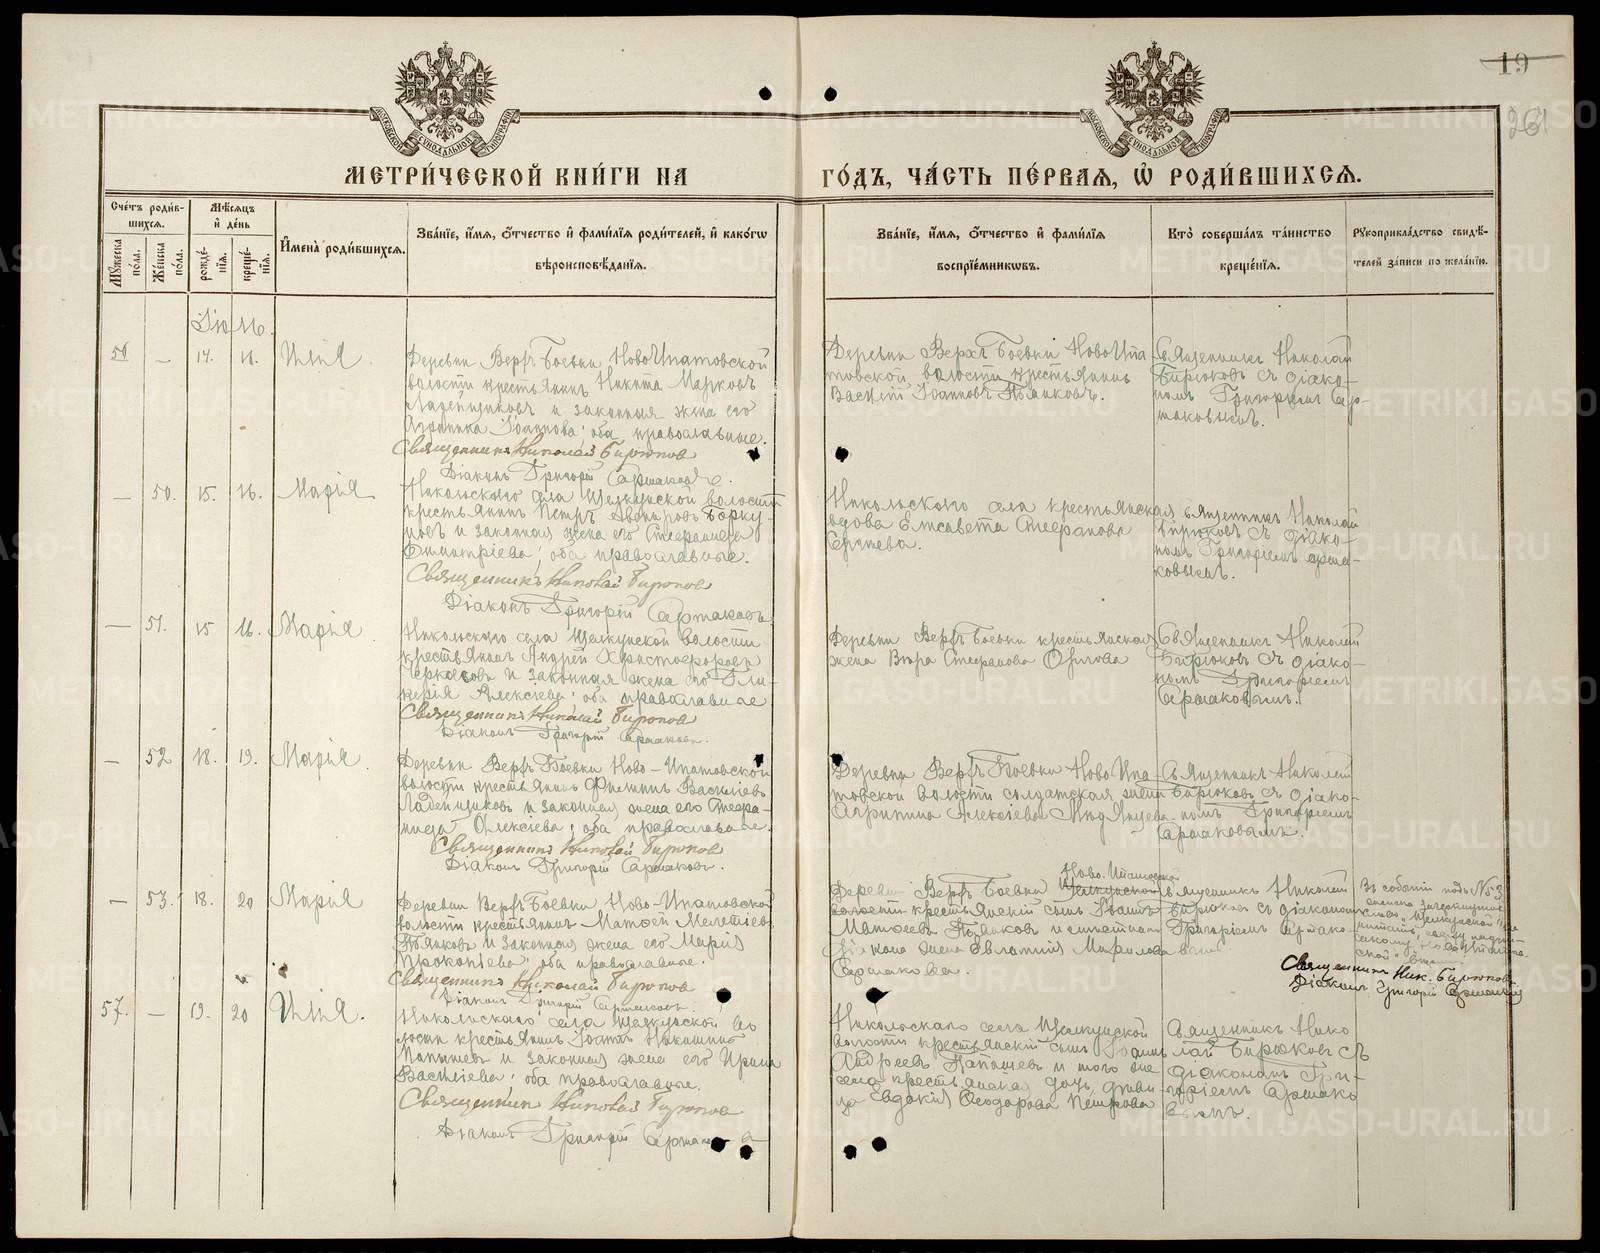 19
261
МОСКОВСКОЙ СѴНОДАЛЬНОЙ ТИПОГРАФІИ
МОСКОВСКОЙ СѴНОДАЛЬНОЙ ТИПОГРАФІИ
МЕТРИ́ЧЕСКОЙ КНИ́ГИ НА
ГО́ДЪ, ЧА́СТЬ ПЕ́РВАЯ, Ѡ҆ РОДИ́ВШИХСЯ.
Сче́тъ роди́в-
шихся.
Мѣ́сяцъ
и҆ де́нь
Мꙋ́жеска
по́ла.
Же́нска
по́ла.
рожде́-
нїя.
креще́-
нїя.
И҆мена̀ роди́вшихся.
Зва́нїе, и҆́мя, ѻ҆́тчество и҆ фами́лїя роди́телей, и҆ како́гѡ
вѣроисповѣ́данїя.
Зва́нїе, и҆́мя, ѻ҆́тчество и҆ фами́лїя
воспрїе́мникѡвъ.
Кто̀ соверша́лъ та́инство
креще́нїя.
Рꙋкоприкла́дство свидѣ́-
телей за́писи по жела́нїю.
Іюль.
56 — 14. 16. Илія.
Деревни Верхъ Боевки Ново Ипатовской
волости крестьянинъ Никита Марковъ
Ладейщиковъ и законная жена его
Агрипина Іоаннова; оба православные.
Священникъ Николай Бирюковъ
Діаконъ Григорій Сармаковъ.
Деревни Верхъ Боевки Ново Ипа-
товской волости крестьянинъ
Василій Іоанновъ Пьянковъ.
Священникъ Николай
Бирюковъ съ діако-
номъ Григоріемъ Сар-
маковымъ.
— 50. 15. 16. Марія
Никольского села Щелкунской волости
крестьянинъ Петръ
и законная жена его Стефанида
Димитріева; оба православные.
Священникъ Николай Бирюковъ
Діаконъ Григорій Сармаковъ
Никольского села крестьянская
вдова Елисавета Стефанова
Сергѣева.
Священникъ Николай
Бирюковъ съ діако-
номъ Григоріемъ Сарма-
ковымъ.
— 51. 15 16. Марія.
Никольского села Щелкунской волости
крестьянинъ Андрей Христофоровъ
и законная жена его Гли-
керія Алексіева; оба православные
Священникъ Николай Бирюковъ
Діаконъ Григорій Сармаковъ.
Деревни Верхъ Боевки крестьянская
жена Вѣра Стефанова
Священникъ Николай
Бирюковъ съ діако-
номъ Григоріемъ
Сармаковымъ.
— 52 18. 19. Марія.
Деревни Верхъ Боевки Ново-Ипатовской
волости крестьянинъ Филиппъ Васильевъ
Ладейщиковъ и законная жена его Стефа-
нида Алексіева; оба православные.
Священникъ Николай Бирюковъ
Діаконъ Григорій Сармаковъ.
Деревни Верхъ Боевки Ново Ипа-
товской волости солдатская жена
Агрипина Алексіева
Священникъ Николай
Бирюковъ съ діако-
номъ Григоріемъ
Сармаковымъ.
— 53. 18. 20 Марія
Деревни Верхъ Боевки Ново-Ипатовской
волости крестьянинъ Матфей Мелетіевъ
Пьянковъ и законная жена его Марія
Прокопіева; оба православные.
Священникъ Николай Бирюковъ
Діаконъ Григорій Сармаковъ.
Ново-Ипатовской
Деревни Верхъ Боевки Щелкунской
волости крестьянскій сынъ Іоаннъ
Матфеевъ Пьянковъ и
діакона жена Евлампія
Сармакова.
Священникъ Николай
Бирюковъ съ діакономъ
Григоріемъ Сармако-
вымъ.
Въ событіи подъ №53
слово „Щелкунской"
Священникъ Ник. Бирюковъ
Діаконъ Григорій Сармаковъ
57. — 19. 20 Илія.
Никольского села Щелкунской во-
лости крестьянинъ Іоаннъ
и законная жена его Ирина
Василіева; оба православные.
Священникъ Николай Бирюковъ
Діаконъ Григорій Сармаковъ
Никольскаго села Щелкунской
волости крестьянскій сынъ Іоаннъ
Андреевъ и того же
села крестьянская дочь, дѣви-
ца Евдокія Ѳеодорова Петрова
Священникъ Нико-
лай Бирюковъ съ
діакономъ Гри-
горіемъ Сармако-
вымъ.